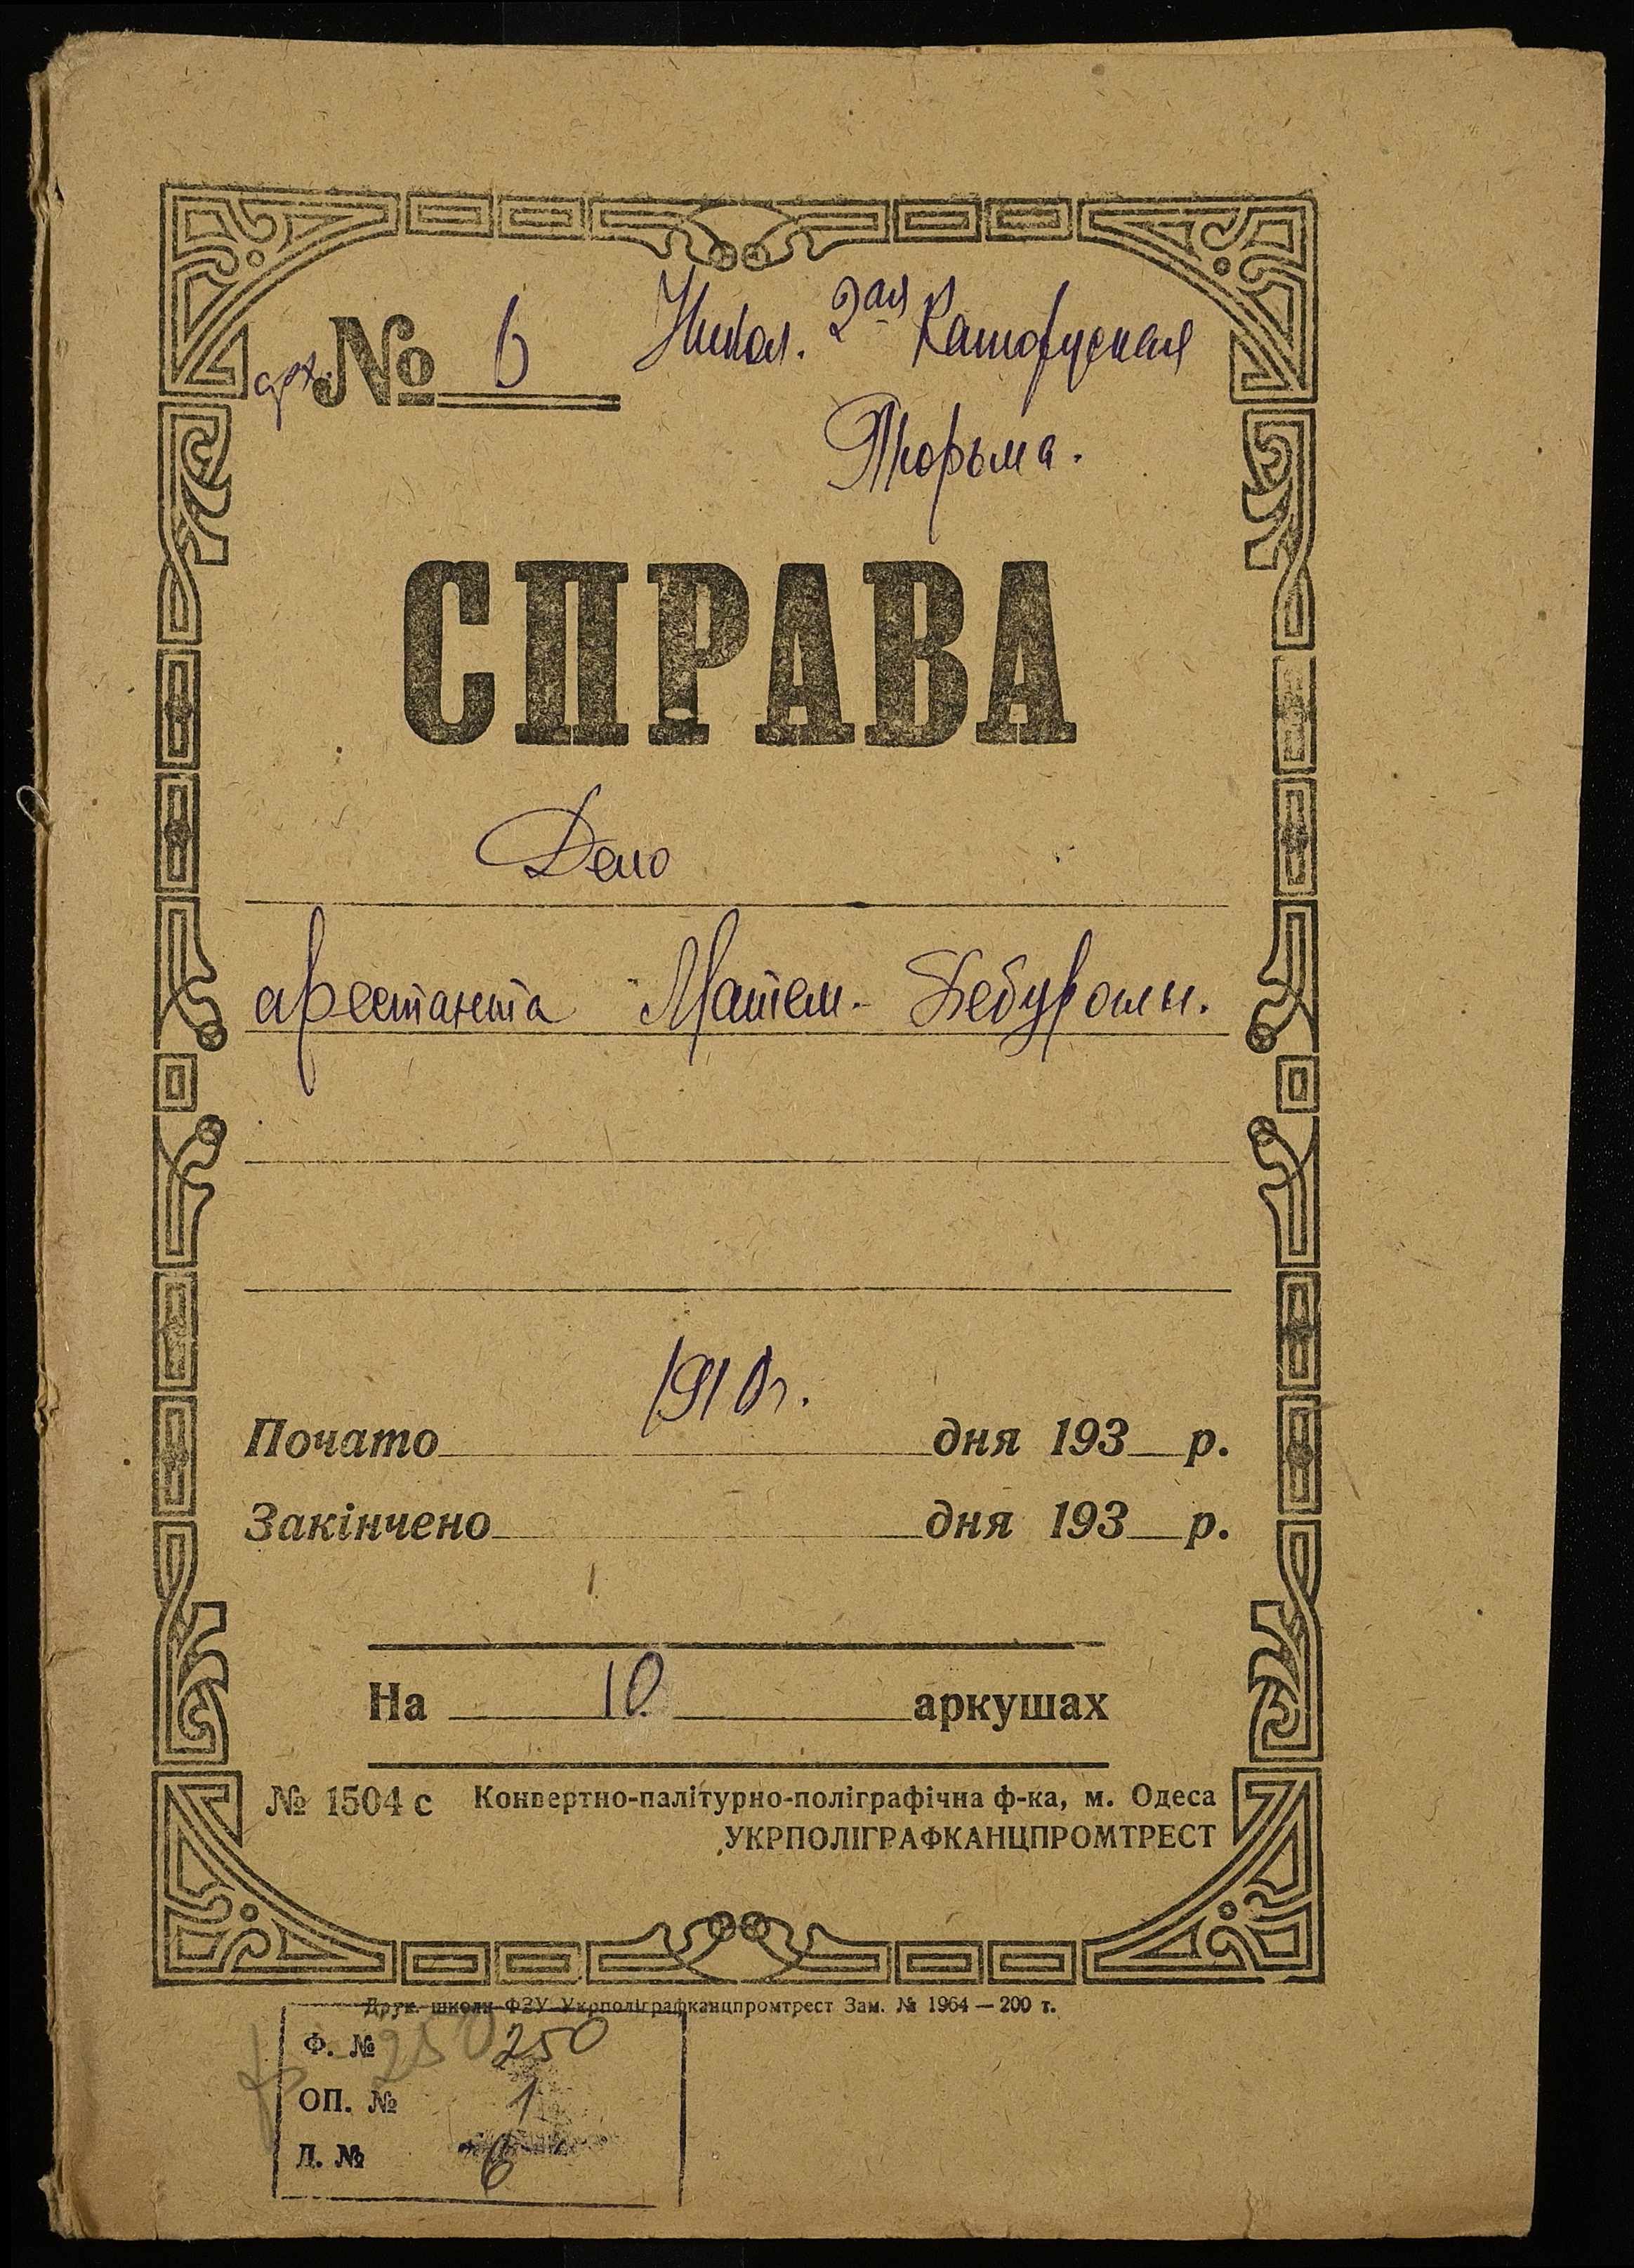 арх. № 6 Никол. 2ая Каторжная
Тюрьма.
СПРАВА
Дело
арестанта Матем-
Почато 1910г. дня 193 р.
Закінчено дня 193 р.
На 10 аркушах
№ 1504 с Конвертно-палітурно-поліграфічна ф-ка, м. Одеса
УКРПОЛІГРАФКАНЦПРОМТРЕСТ
Друк. школи ФЗУ Укрполіграфканцпромтрест Зам. № 1964 — 200 т.
ф-250
Ф. № 250
ОП. № 1
Л. № 6